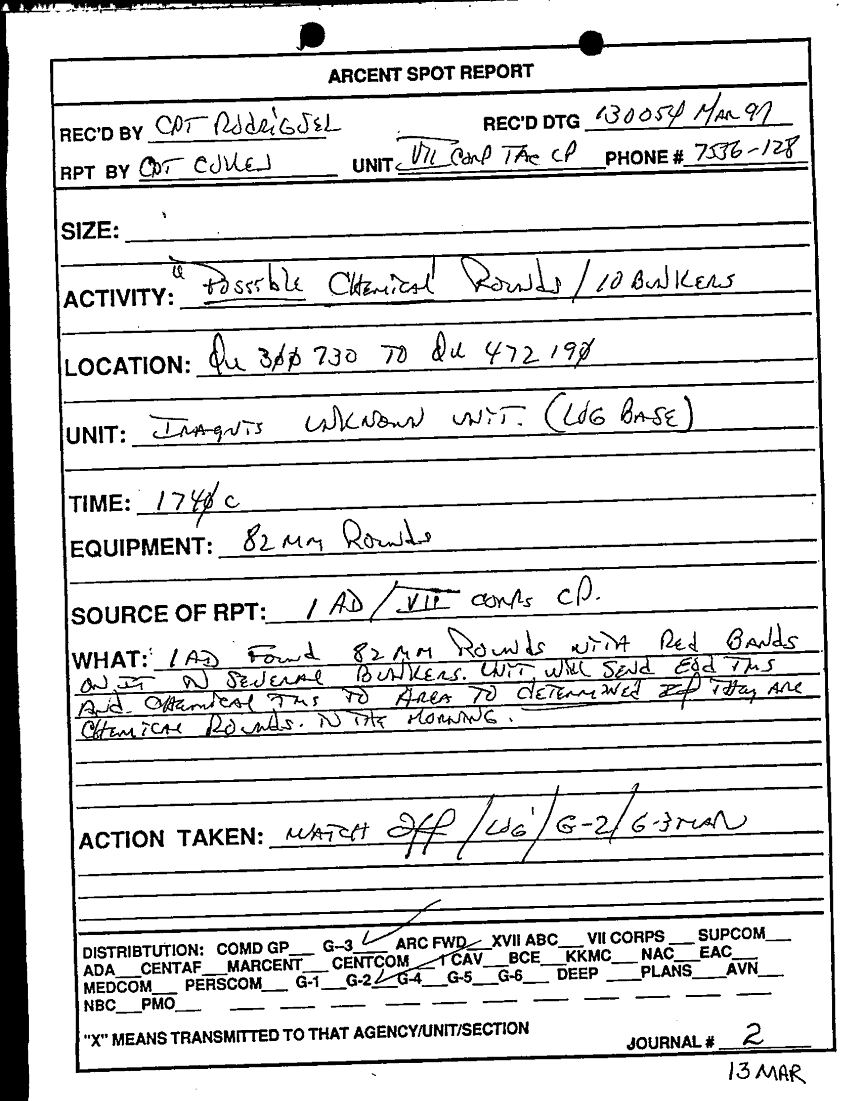 ARCENT SPOT REPORT
REC'D BY CPT RODRIGUEZ REC'D DTG 130054 MAR 91
RPT BY CPT UNIT VII CORP TAC CP PHONE # 7536-128
SIZE:
ACTIVITY: "Possible Chemical Rounds / 10 BUNKERS
LOCATION: QU 3ØØ 730 TO QU 472 19Ø
UNIT: UNKNOWN UNIT. (LOG BASE)
TIME: 174Ø C
EQUIPMENT: 82 MM Rounds
SOURCE OF RPT: 1 AD / VII CORPS CP.
WHAT: 1 AD Found 82 MM Rounds WITH Red BANDS
ON IT IN SEVERAL BUNKERS. UNIT Will Send EOD TMS
And Chemical TMS TO AREA TO DETERMINED IF They ARE
CHEMICAL Rounds. IN THE MORNING.
ACTION TAKEN: WATCH Off / LOG / G-2 / G-3
DISTRIBTUTION: COMD GP___ G--3___ ARC FWD___ XVII ABC___ VII CORPS___ SUPCOM___
ADA___ CENTAF___ MARCENT___ CENTCOM___ 1 CAV___ BCE___ KKMC___ NAC___ EAC___
MEDCOM___ PERSCOM___ G-1___ G-2___ G-4___ G-5___ G-6___ DEEP___ PLANS___ AVN___
NBC___ PMO___
"X" MEANS TRANSMITTED TO THAT AGENCY/UNIT/SECTION
JOURNAL # 2
13 MAR